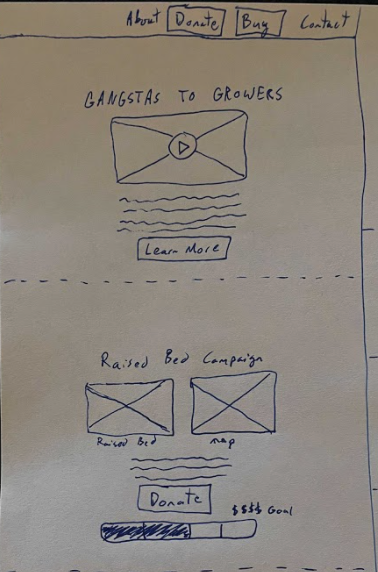 About Donate Buy Contact
GANGSTAS TO GROWERS
Learn More
Raised Bed Campaign
Raised Bed map
Donate
$$$$ Goal